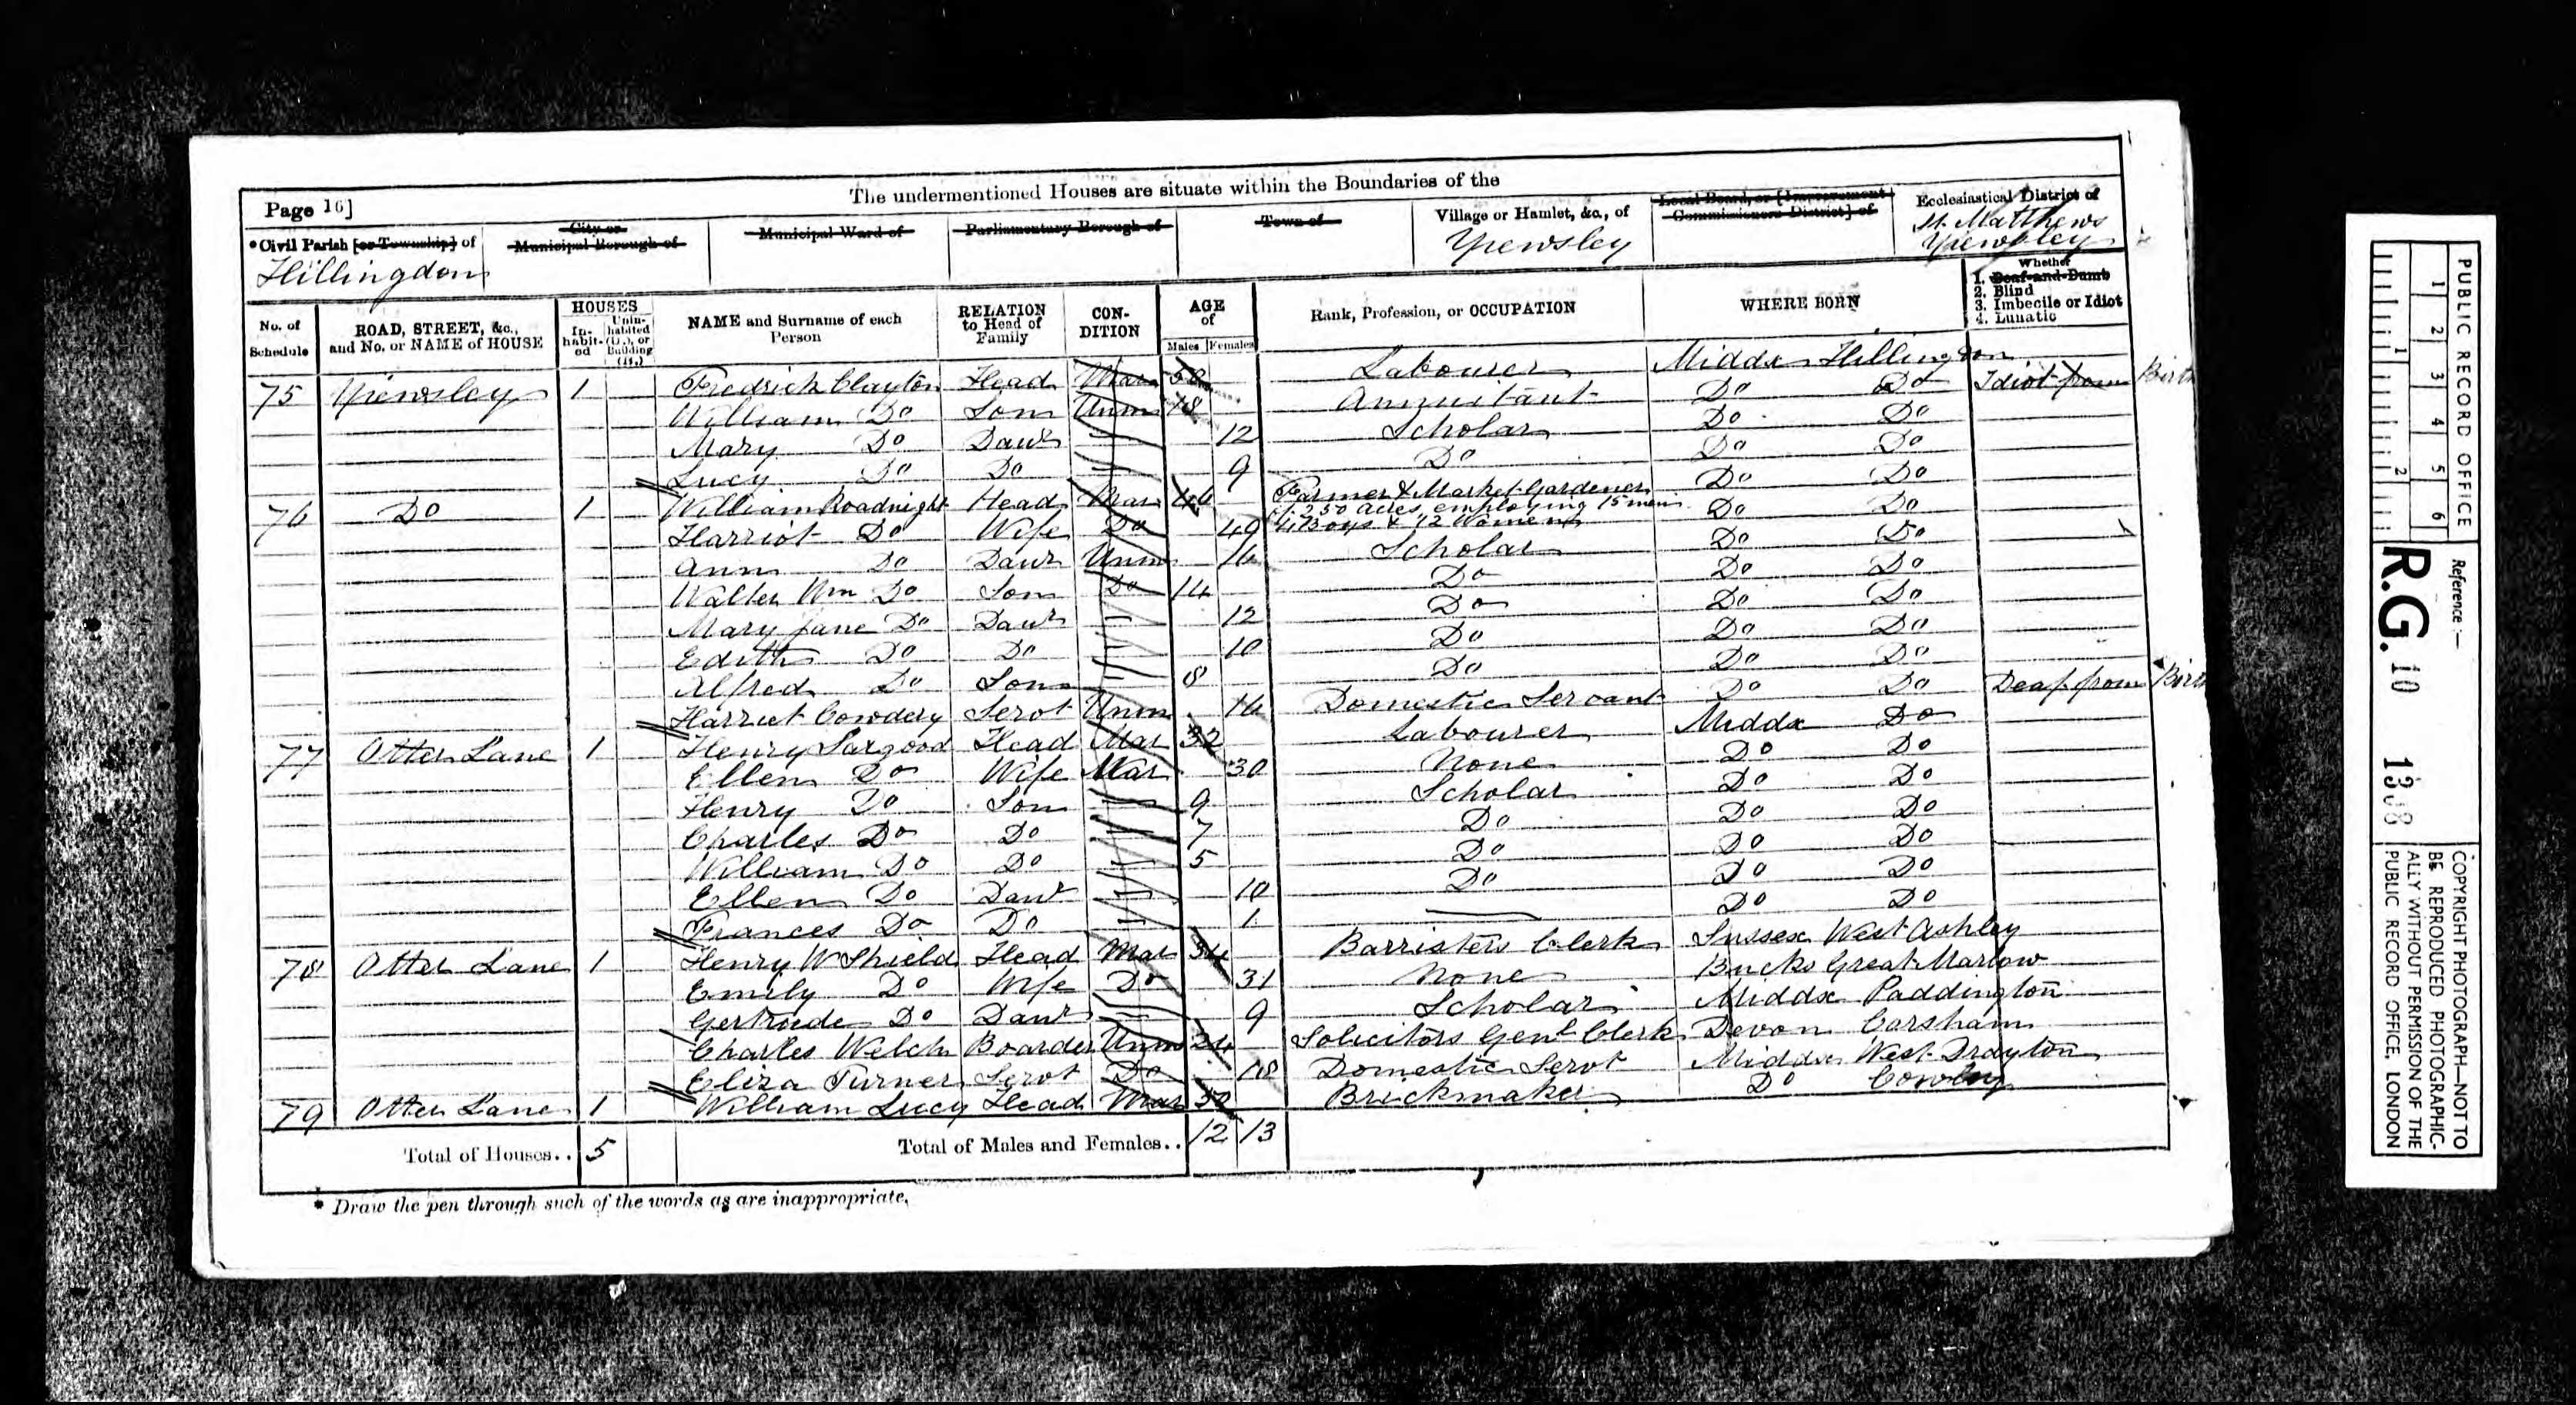 The undermentioned Houses are situate within the Boundaries of the
Page 16]
*Civil Parish [or Township] of
Hillingdon
City or Municipal Borough of
Municipal Ward of
Parliamentary Borough of
Town of
Village or Hamlet, &c., of
Yiewsley
Local Board, or [Improvement Commissioners District] of
Ecclesiastical District of
St. Matthews
Yiewsley
No. of Schedule
ROAD, STREET, &c., and No. or NAME of HOUSE
HOUSES
In-habit-ed
Unin-habited (U.), or Building (B.)
NAME and Surname of each Person
RELATION to Head of Family
CON-DITION
AGE of
Males Females
Rank, Profession, or OCCUPATION
WHERE BORN
Whether
1. Deaf-and-Dumb
2. Blind
3. Imbecile or Idiot
4. Lunatic
75 Yiewsley 1 Fredrick Clayton Head Mar Labourer Middx Hillingdon
William Do Son Unm 18 Annuitant Do Do Idiot from Birth
Mary Do Daur 12 Scholar Do Do
Lucy Do Do 9 Do Do Do
76 Do 1 William Roadnight Head Mar 46 Farmer & Market Gardener Do Do
of 250 acres employing 15 men
4 Boys & 12 Women
Harriot Do Wife Do 49 Do Do
Ann Do Daur Unm 16 Scholar Do Do
Walter Wm Do Son Do 14 Do Do Do
Mary Jane Do Daur 12 Do Do Do
Edith Do Do 10 Do Do Do
Alfred Do Son 8 Do Do Do
Harriet Cowdery Servt Unm 16 Domestic Servant Do Do Deaf from Birth
77 Otter Lane 1 Henry Sargood Head Mar 32 Labourer Middx Do
Ellen Do Wife Mar 30 None Do Do
Henry Do Son 9 Scholar Do Do
Charles Do Do 7 Do Do Do
William Do Do 5 Do Do Do
Ellen Do Daur 10 Do Do Do
Frances Do Do 1 Do Do
78 Otter Lane 1 Henry W Shield Head Mar 34 Barristers Clerk Sussex West Ashley
Emily Do Wife Do 31 None Bucks Great Marlow
Gertrude Do Daur 9 Scholar Middx Paddington
Charles Welch Boarder Unm 24 Solicitors Genl Clerk Devon Corsham
Eliza Turner Servt Do 18 Domestic Servt Middx West Drayton
79 Otter Lane 1 William Lucy Head Mar 30 Brickmaker Do Cowley
Total of Houses.. 5
Total of Males and Females.. 12 13
* Draw the pen through such of the words as are inappropriate.
PUBLIC RECORD OFFICE
1 2 3 4 5 6
1 2
Reference:-
R.G. 10
COPYRIGHT PHOTOGRAPH—NOT TO
BE REPRODUCED PHOTOGRAPHIC-
ALLY WITHOUT PERMISSION OF THE
PUBLIC RECORD OFFICE, LONDON